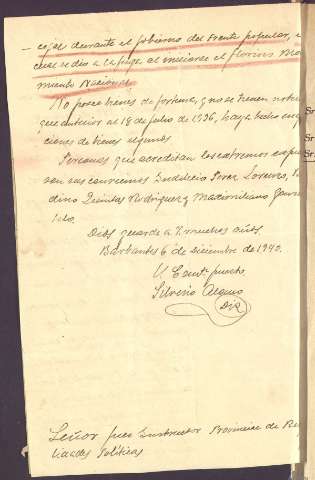 cejal durante el Gobierno del Frente popular, e
cual se dio a la fuga al iniciarse el glorioso Mo
miento Nacional.
No posee bienes de fortuna, y no se tienen noti
que anterior al 18 de Julio de 1936, haya hecho
ciones de bienes algunos.
Personas que acreditan los extremos
son sus convecinos Indalecio Perez Lorenzo,
dino Quintas Rodriguez y Maximiliano
Dios guarde a V. muchos años.
Barbantes 6 de Diciembre de 1940.
El Comte. puesto
Silverio
Señor Juez Instructor Provincial de
lidades Políticas